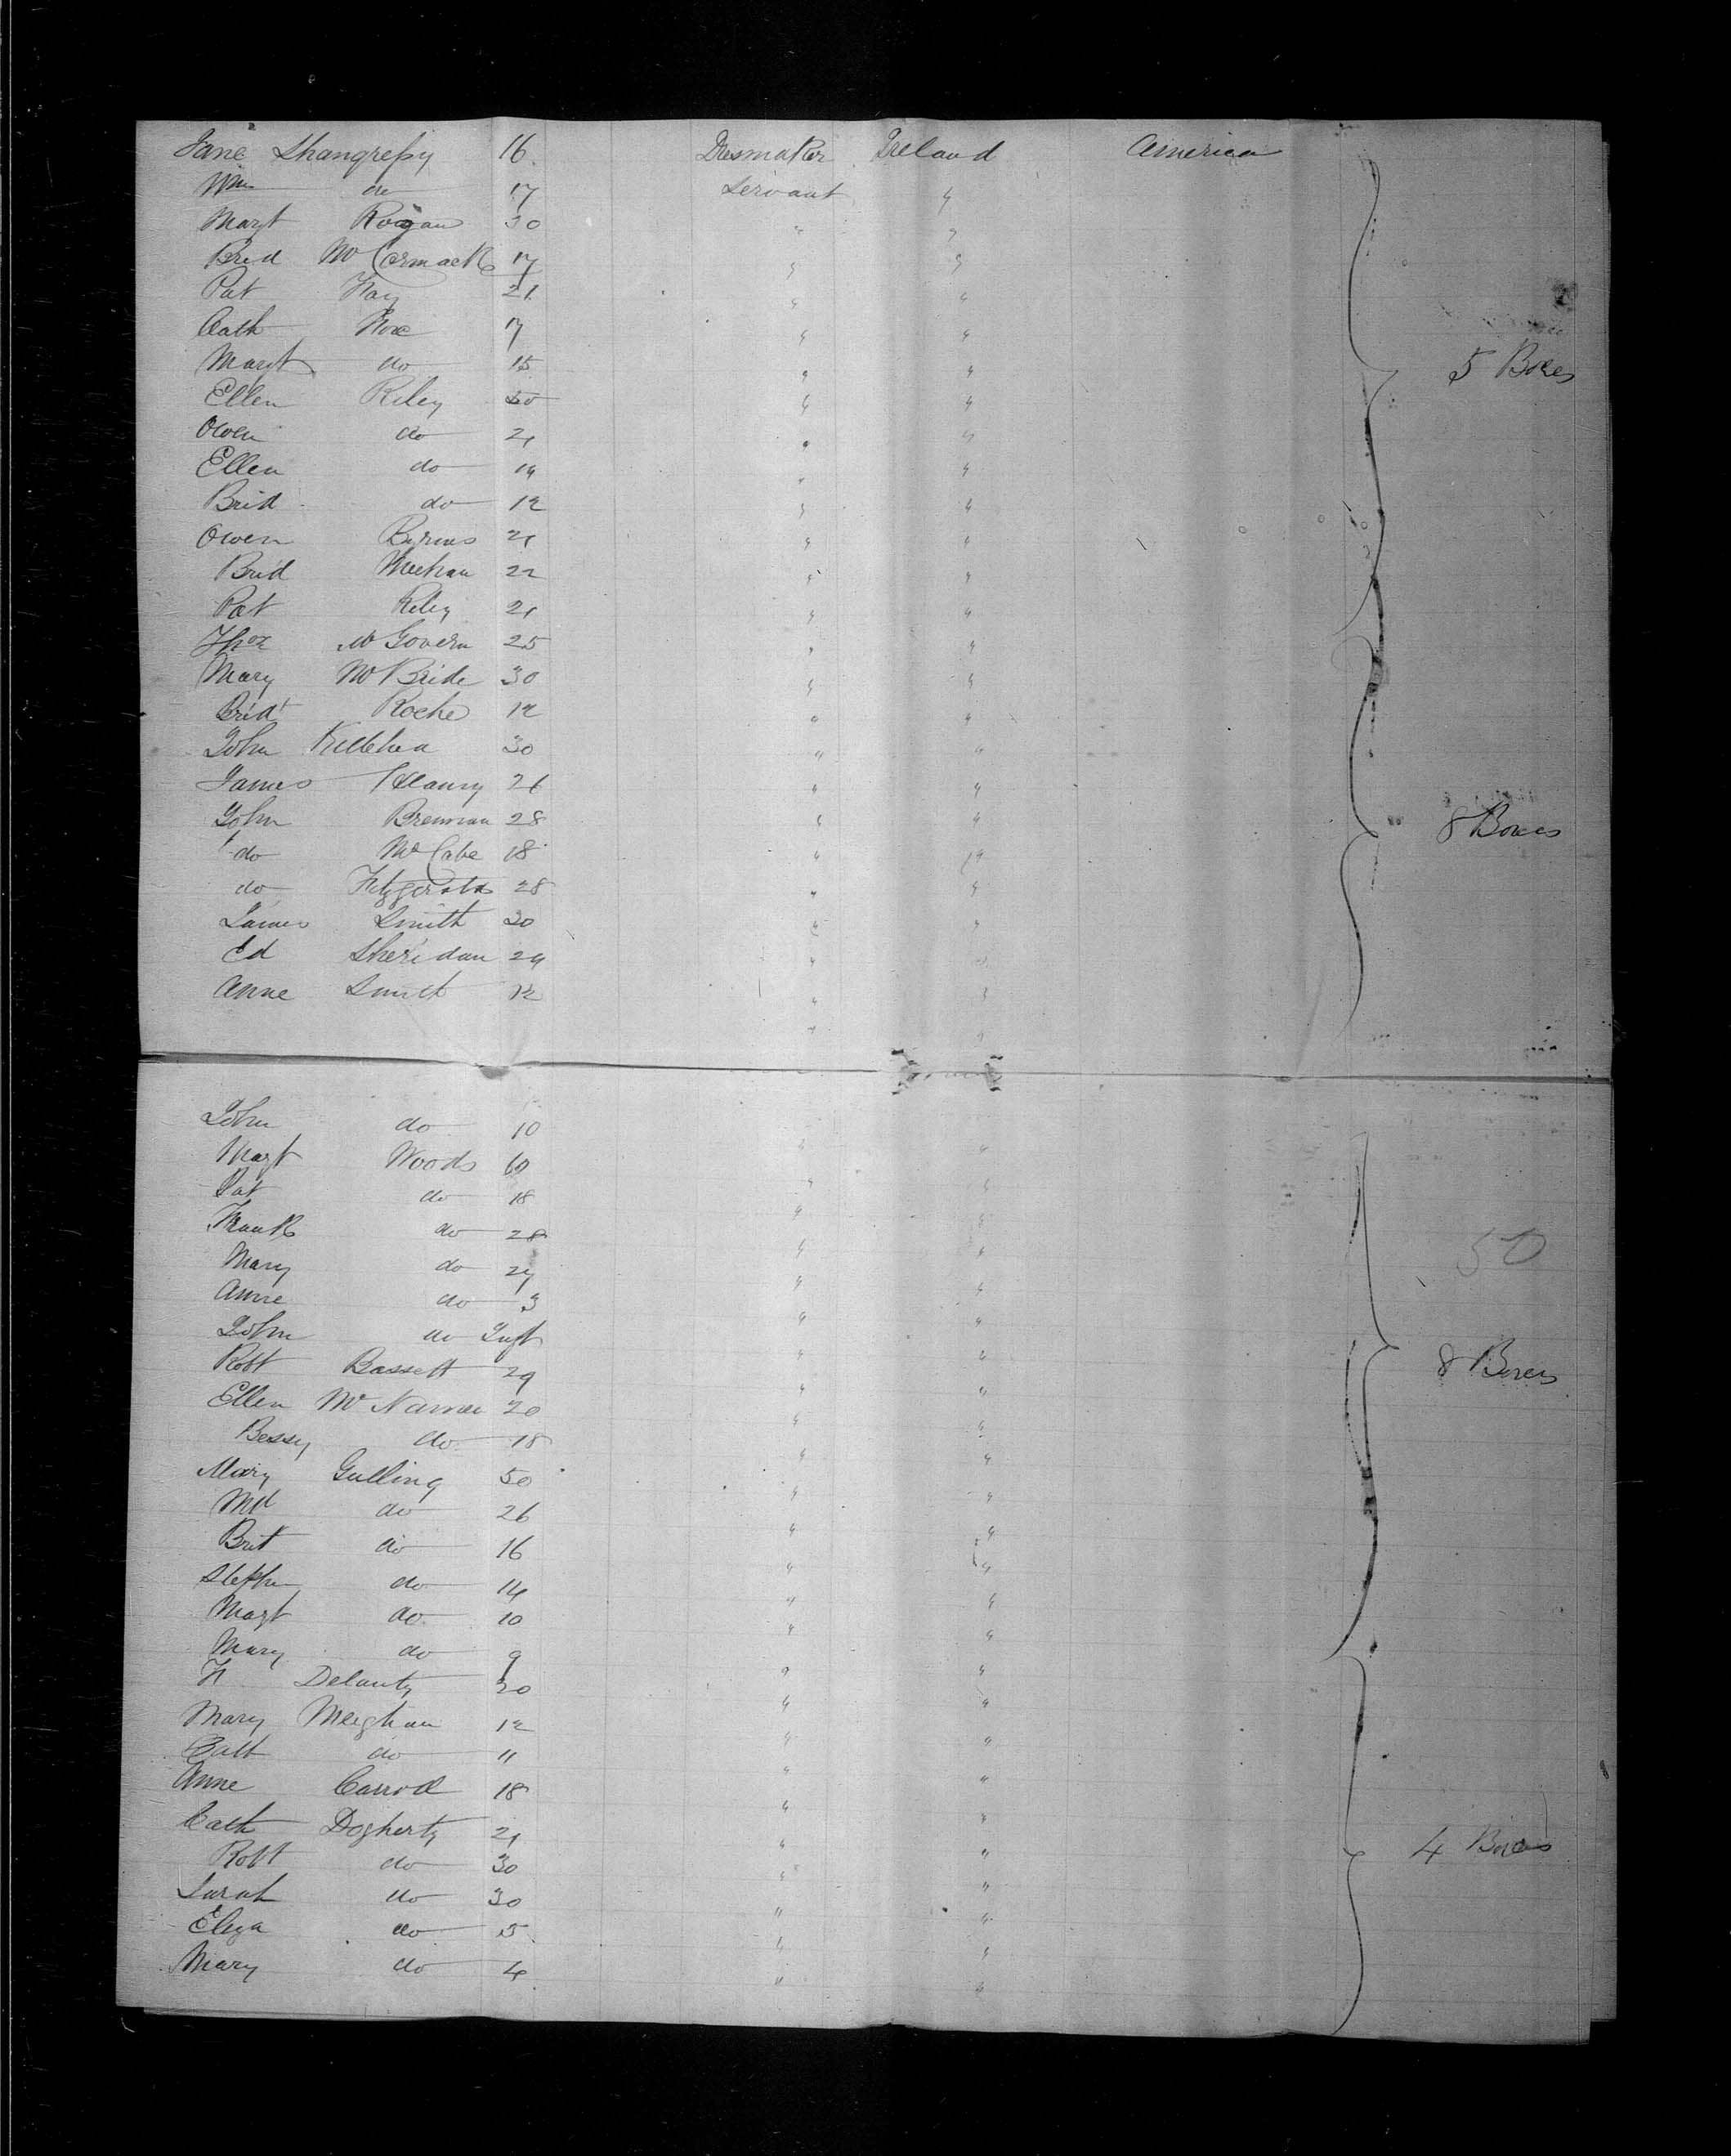 Jane Shangressy 16 Dresmaker Ireland America
Wm do 17 Servant "
Margt Rogan 30 " "
Brid McCormack 17 " "
Pat Fay 21 " "
Cath 17 " "
Margt do 15 " "
5 Boxes
Ellen Riley 50 " "
Owen do 21 " "
Ellen do 19 " "
Brid do 12 " "
Owen Byrnes 21 " "
Brid Meehan 22 " "
Pat Riley 21 " "
Thos McGovern 25 " "
Mary McBride 30 " "
Bridt Roche 12 " "
John 30 " "
James 26 " "
John Brennan 28 " "
8 Boxes
do McCabe 18 " "
do Fitzgerald 28 " "
James Smith 30 " "
Ed Sheridan 24 " "
Anne Smith 12 " "
John do 10 " "
Margt Woods 60 " "
Pat do 18 " "
Frank do 28 " "
50
Mary do 27 " "
Anne do 3 " "
John do Inft " "
Robt Bassett 29 " "
8 Boxes
Ellen McNamee 20 " "
Bessy do 18 " "
Mary Gulling 50 " "
Md do 26 " "
Brit do 16 " "
Stephn do 14 " "
Margt do 10 " "
Mary do 9 " "
H Delanty 30 " "
Mary Meighan 12 " "
Cath do 11 " "
Anne Carrol 18 " "
Cath Dogherty 21 " "
4 Boxes
Robt do 30 " "
Sarah do 30 " "
Eliza do 5 " "
Mary do 4 " "